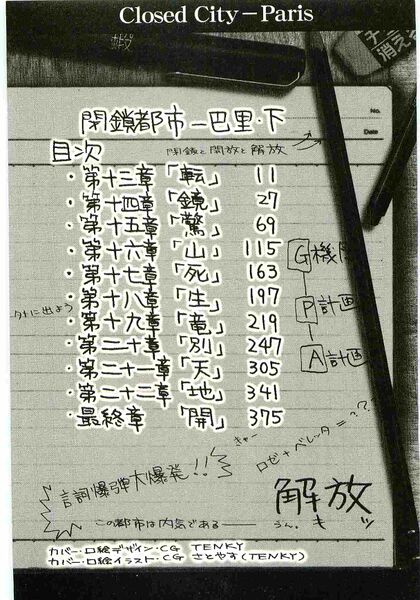 Closed City－Paris
No.
Date
閉鎖都市―巴里・下
目次
閉鎖と開放と解放
・第十三章「転」 11
・第十四章「鏡」 27
・第十五章「驚」 69
・第十六章「山」 115
・第十七章「死」 163
・第十八章「生」 197
・第十九章「竜」 219
・第二十章「別」 247
・第二十一章「天」 305
・第二十二章「地」 341
・最終章「開」 375
外に出よう
G機関
P計画
A計画
きゃー
ロゼ+ベレッタ=?.?
言詞爆弾大爆発!!
解放
この都市は内気である――
うん。
カバー・口絵デザイン・CG TENKY
カバー・口絵イラスト・CG さとやす(TENKY)